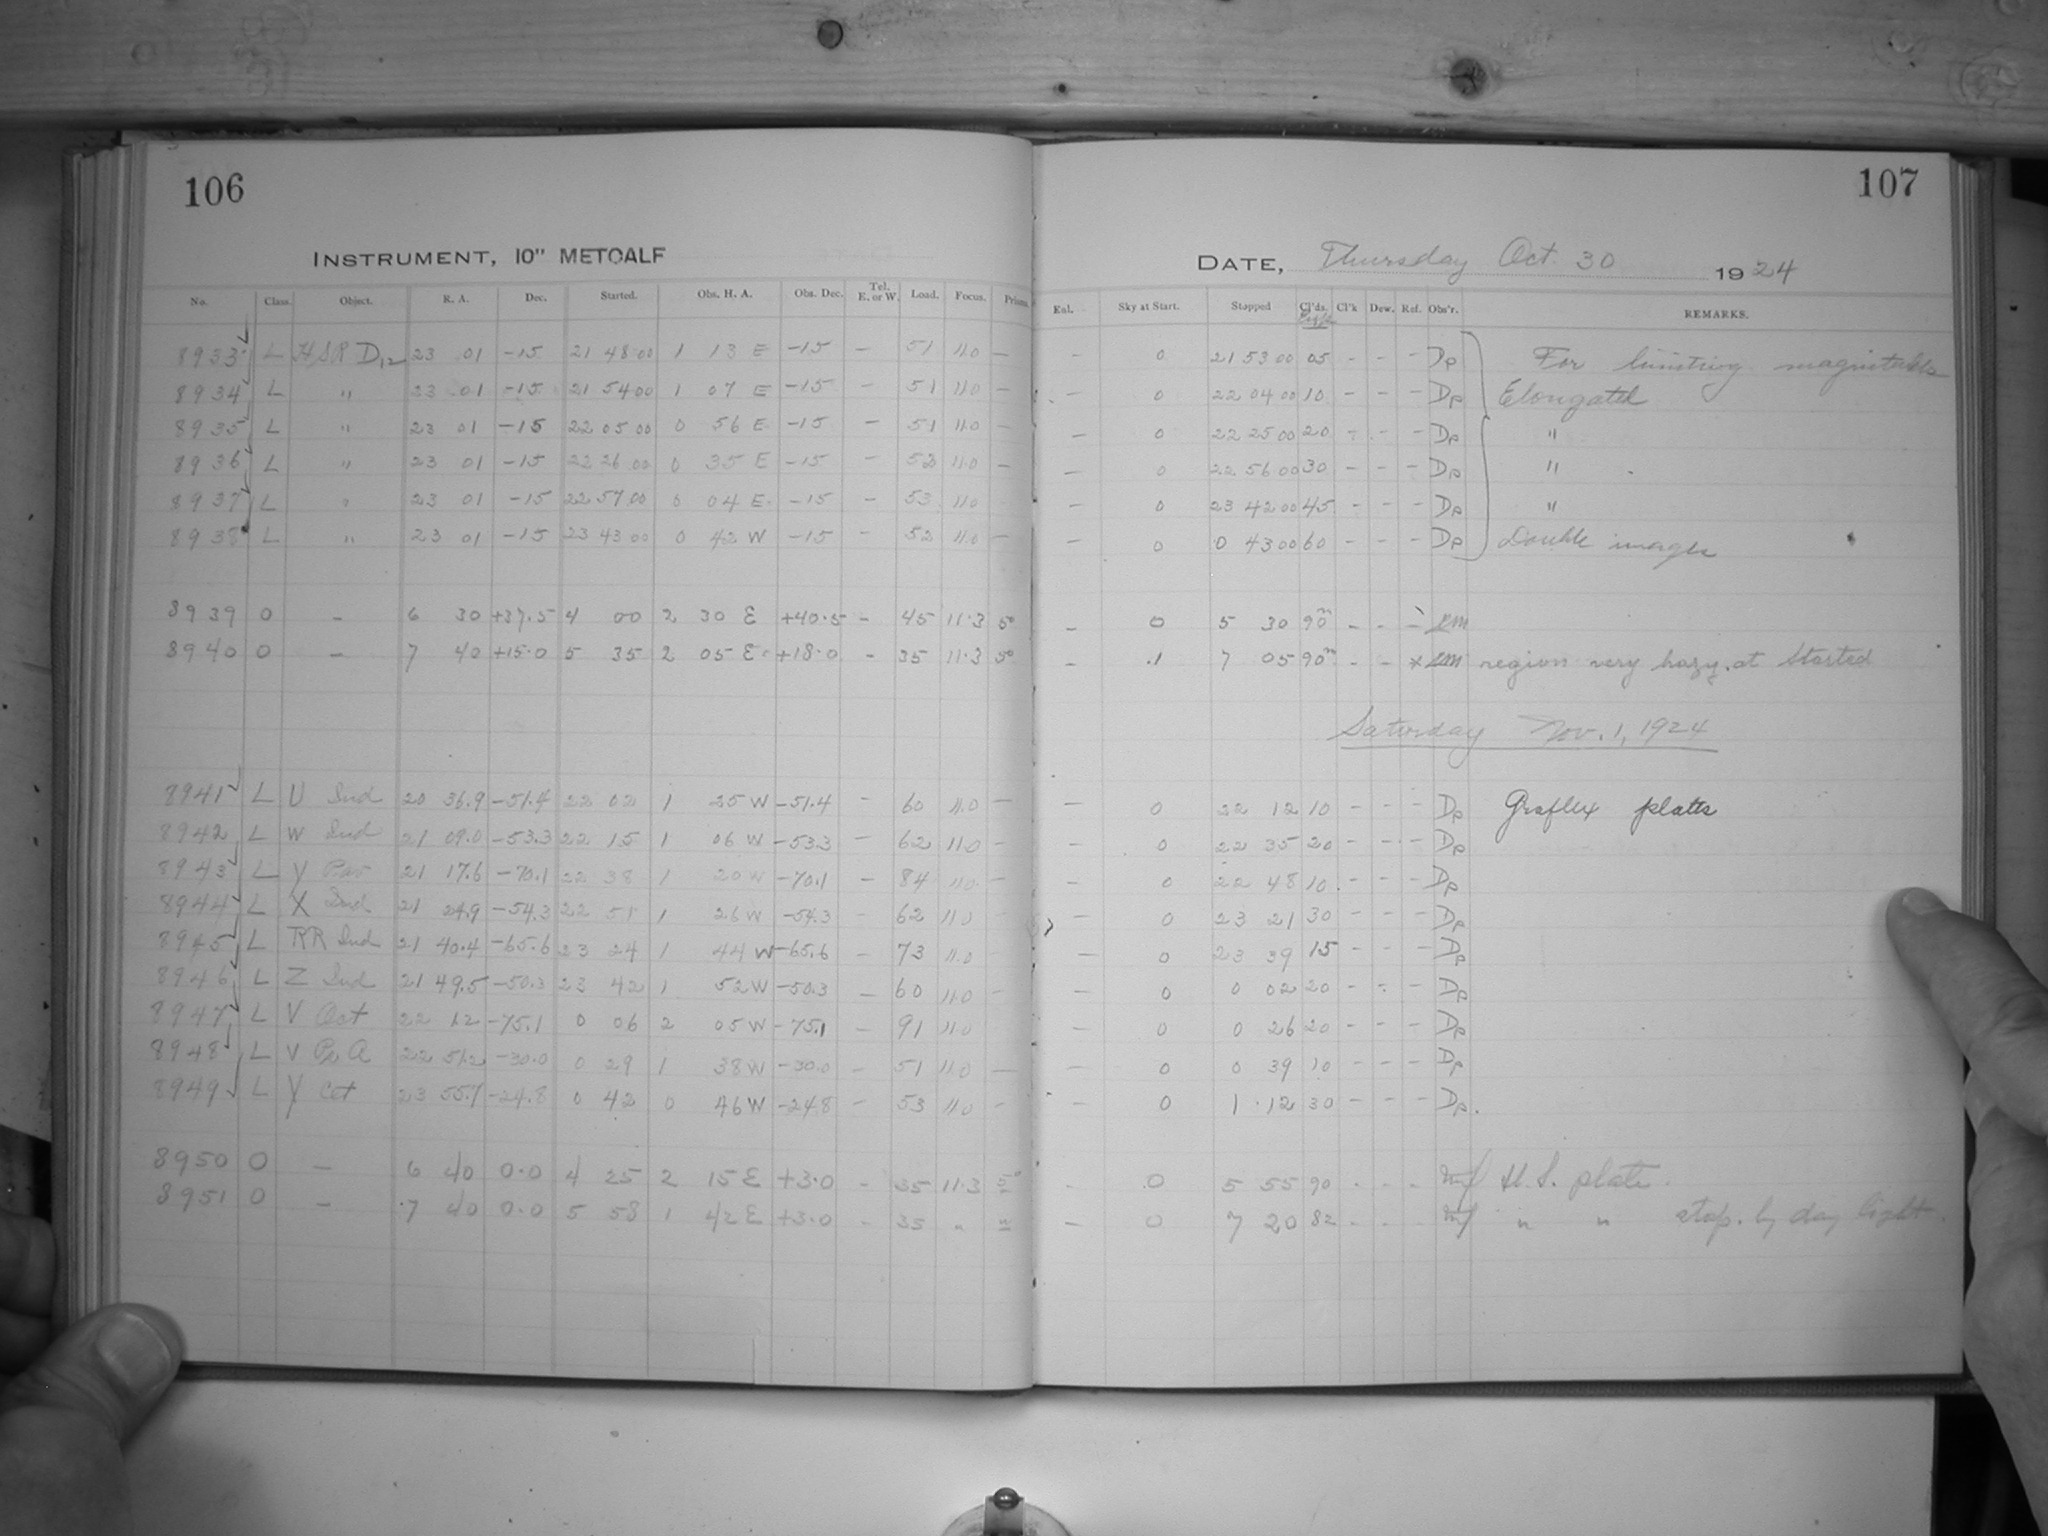 106
INSTRUMENT, 10" METCALF
No. Class. Object. R. A. Dec. Started. Obs. H. A. Obs. Dec. Tel. E. or W. Load. Focus. Prisms.
8933 L HSR D12 23 01 -15 21 48 00 1 13 E -15 - 51 11.0 -
8934 L " 23 01 -15 21 54 00 1 07 E -15 - 51 11.0 -
8935 L " 23 01 -15 22 05 00 0 56 E -15 - 51 11.0 -
8936 L " 23 01 -15 22 26 00 0 35 E -15 - 53 11.0 -
8937 L " 23 01 -15 22 57 00 0 04 E -15 - 53 11.0 -
8938 L " 23 01 -15 23 43 00 0 42 W -15 - 52 11.0 -
8939 O - 6 30 +37.5 4 00 2 30 E +40.5 - 45 11.3 5°
8940 O - 7 40 +15.0 5 35 2 05 E +18.0 - 35 11.3 5°
8941 L U Ind 20 36.9 -51.4 22 02 1 25 W -51.4 - 60 11.0 -
8942 L W Ind 21 09.0 -53.3 22 15 1 06 W -53.3 - 62 11.0 -
8943 L Y Pav 21 17.6 -70.1 22 38 1 20 W -70.1 - 84 11.0 -
8944 L X Ind 21 24.9 -54.3 22 51 1 26 W -54.3 - 62 11.0 -
8945 L RR Ind 21 40.4 -65.6 23 24 1 44 W -65.6 - 73 11.0 -
8946 L Z Ind 21 49.5 -50.3 23 42 1 52 W -50.3 - 60 11.0 -
8947 L V Oct 22 12 -75.1 0 06 2 05 W -75.1 - 91 11.0 -
8948 L V Ps A 22 51.2 -30.0 0 29 1 38 W -30.0 - 51 11.0 -
8949 L Y Cet 23 55.7 -24.8 0 42 0 46 W -24.8 - 53 11.0 -
8950 O - 6 40 0.0 4 25 2 15 E +3.0 - 35 11.3 5°
8951 O - 7 40 0.0 5 58 1 42 E +3.0 - 35 " "
107
DATE, Thursday Oct. 30 1924
Enl. Sky at Start. Stopped Cl'ds. Cl'k Dew. Ref. Obs'r. REMARKS.
- 0 21 53 00 05 - - - Dp For limiting magnitudes
- 0 22 04 00 10 - - - Dp Elongated
- 0 22 25 00 20 - - - Dp "
- 0 22 56 00 30 - - - Dp "
- 0 23 42 00 45 - - - Dp "
- 0 0 43 00 60 - - - Dp Double images
- 0 5 30 90m - - -
- .1 7 05 90m - - * region very hazy at Started
Saturday Nov. 1, 1924
- 0 22 12 10 - - - Dp Graflex plates
- 0 22 35 20 - - - Dp
- 0 22 48 10 - - - Dp
- 0 23 21 30 - - - Dp
- 0 23 39 15 - - - Dp
- 0 0 02 20 - - - Dp
- 0 0 26 20 - - - Dp
- 0 0 39 10 - - - Dp
- 0 1 12 30 - - - Dp.
- 0 5 55 90 - - - H. S. plate.
- 0 7 20 82 - - - " " stop. by day light.